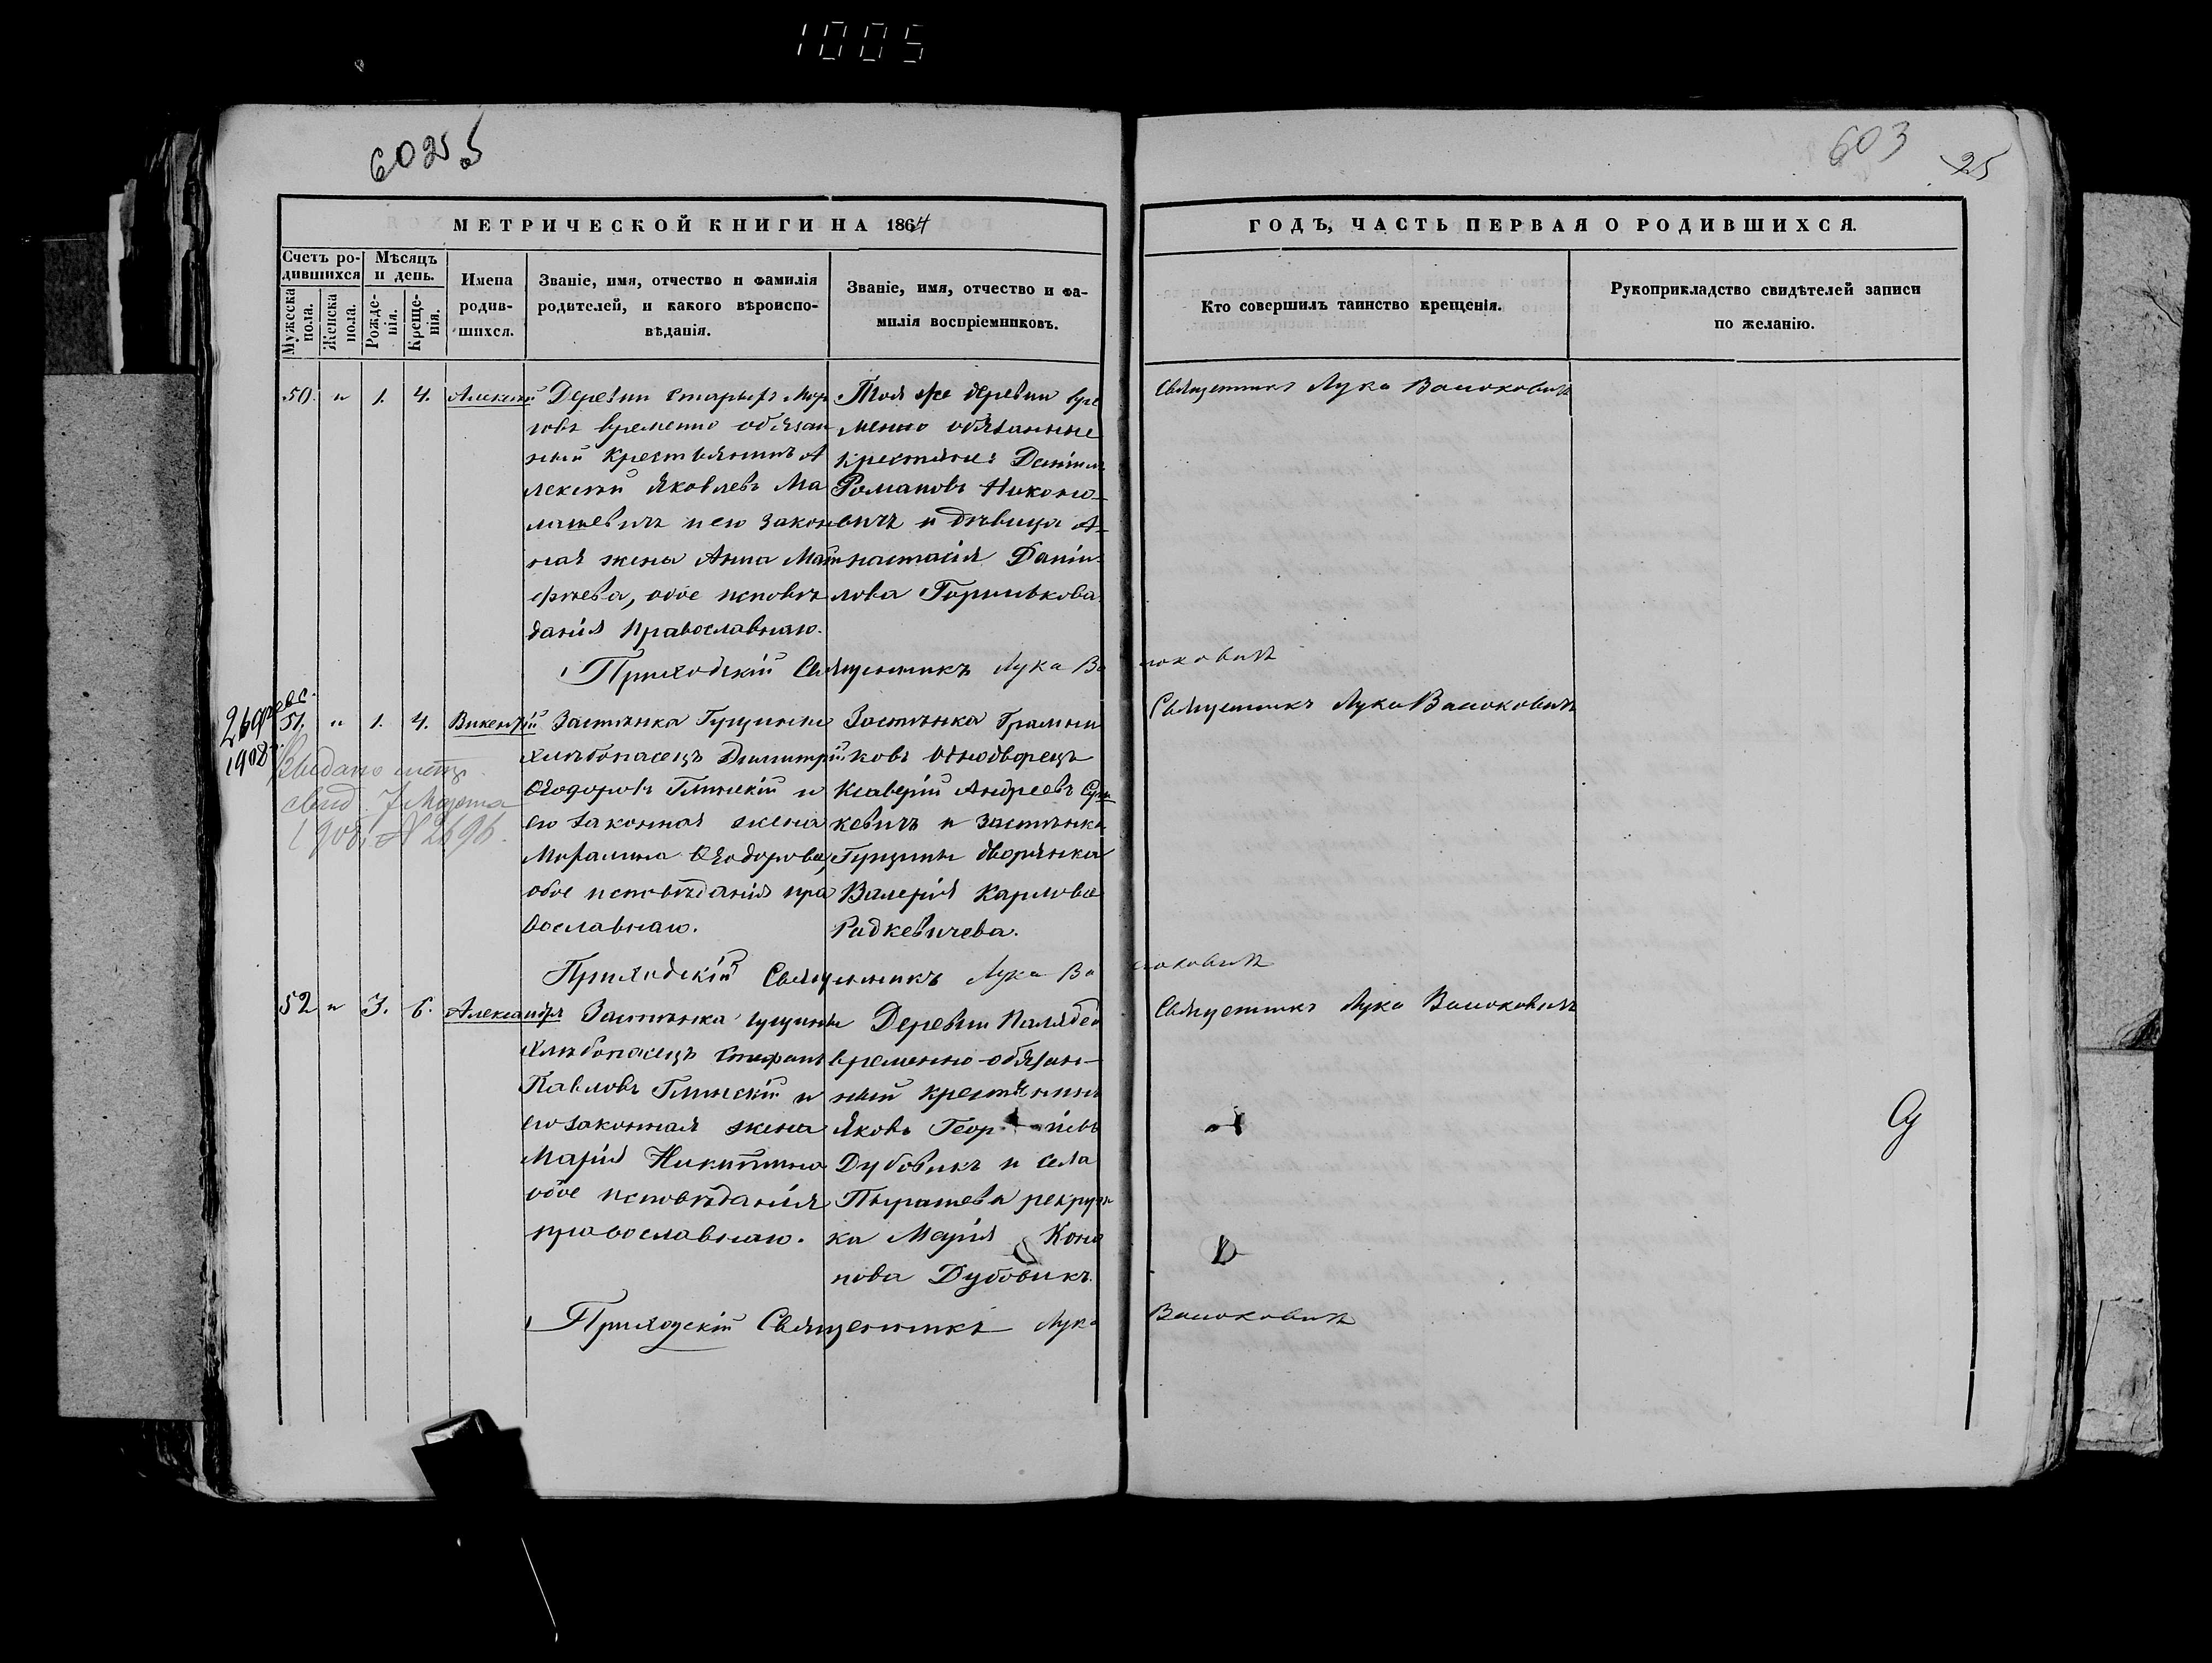 1005
603
25
МЕТРИЧЕСКОЙ КНИГИ НА 1864
ГОДЪ, ЧАСТЬ ПЕРВАЯ О РОДИВШИХСЯ.
Счетъ ро-
дившихся
Мужеска
пола.
Женска
пола.
Мѣсяцъ
и день.
Рожде-
нія.
Креще-
нія.
Имена
родив-
шихся.
Званіе, имя, отчество и фамилія
родителей, и какого вѣроиспо-
вѣданія.
Званіе, имя, отчество и фа-
милія воспріемниковъ.
Кто совершилъ таинство крещенія.
Рукоприкладство свидѣтелей записи
по желанію.
50. " 1. 4. Алексій
Деревни Старыхъ
временно обязан
ный крестьянинъ А
лексій Яковлевъ Ма
лашевичъ и его закон
ная жена Анна Мат
ѳеева, обое исповѣ
данія православнаго.
Той же деревни вре
менно обязанные
крестьяне: Даніилъ
Романовъ
вичъ и дѣвица А-
настасія Даніи-
лова Горшкова.
Священникъ Лука
Приходскій Священникъ Лука
26 февр.
1908 г.
Выдано метр.
свид. 7 Марта
1908 г. № 2696.
51. " 1. 4. Викентій
Застѣнка Гущины
хлѣбопасецъ Димитрій
Ѳеодоровъ Глинскій и
его законная жена
Ѳеодорова,
обое исповѣданія пра
вославнаго.
Застѣнка
ковъ однодворецъ
Ксаверій Андреевъ
кевичъ и застѣнка
Гущины дворянка
Валерія Карлова
Радкевичева.
Священникъ Лука
Приходскій Священникъ Лука
52 " 3. 6. Александръ
Застѣнка Гущины
хлѣбопасецъ Стефанъ
Павловъ Глинскій и
его законная жена
Марія Никитина
обое исповѣданія
православнаго.
Деревни
временно-обязан-
ный крестьянинъ
Яковъ
Дубовикъ и села
Пырашева рекрут
ка Марія Коно
нова Дубовикъ.
Священникъ Лука
Приходскій Священникъ Лука